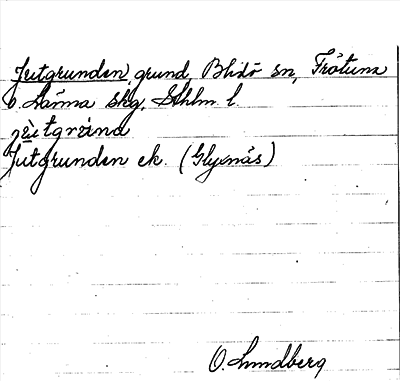 Jutgrunden, grund, Blidö sn, Frötuna
o. Länna skg, Sthlm l.
Jutgrunden ek. (Glyxnäs)
O. Lundberg